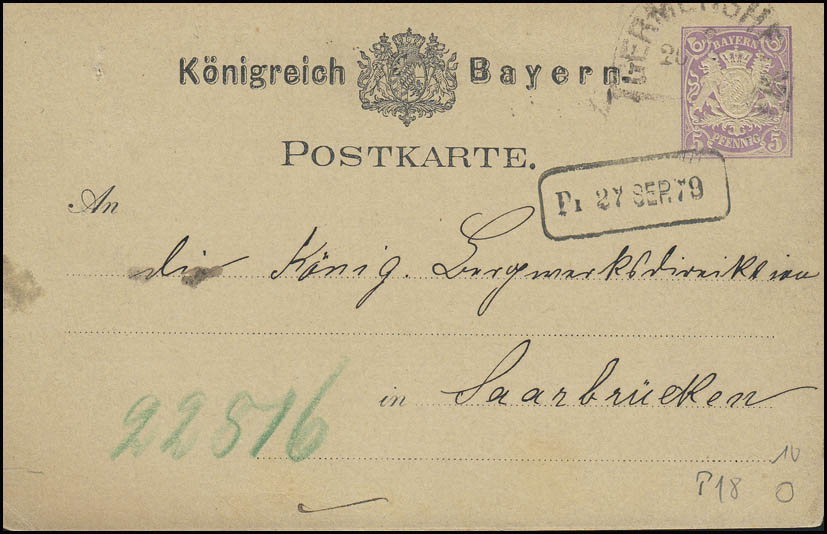 GERMERSHEIM
5 BAYERN 5
5 PFENNIG 5
Königreich Bayern.
POSTKARTE.
Pr 27 SEP. 79
An
die König. Bergwerksdirektion
22516
in Saarbrücken
10
P18 O